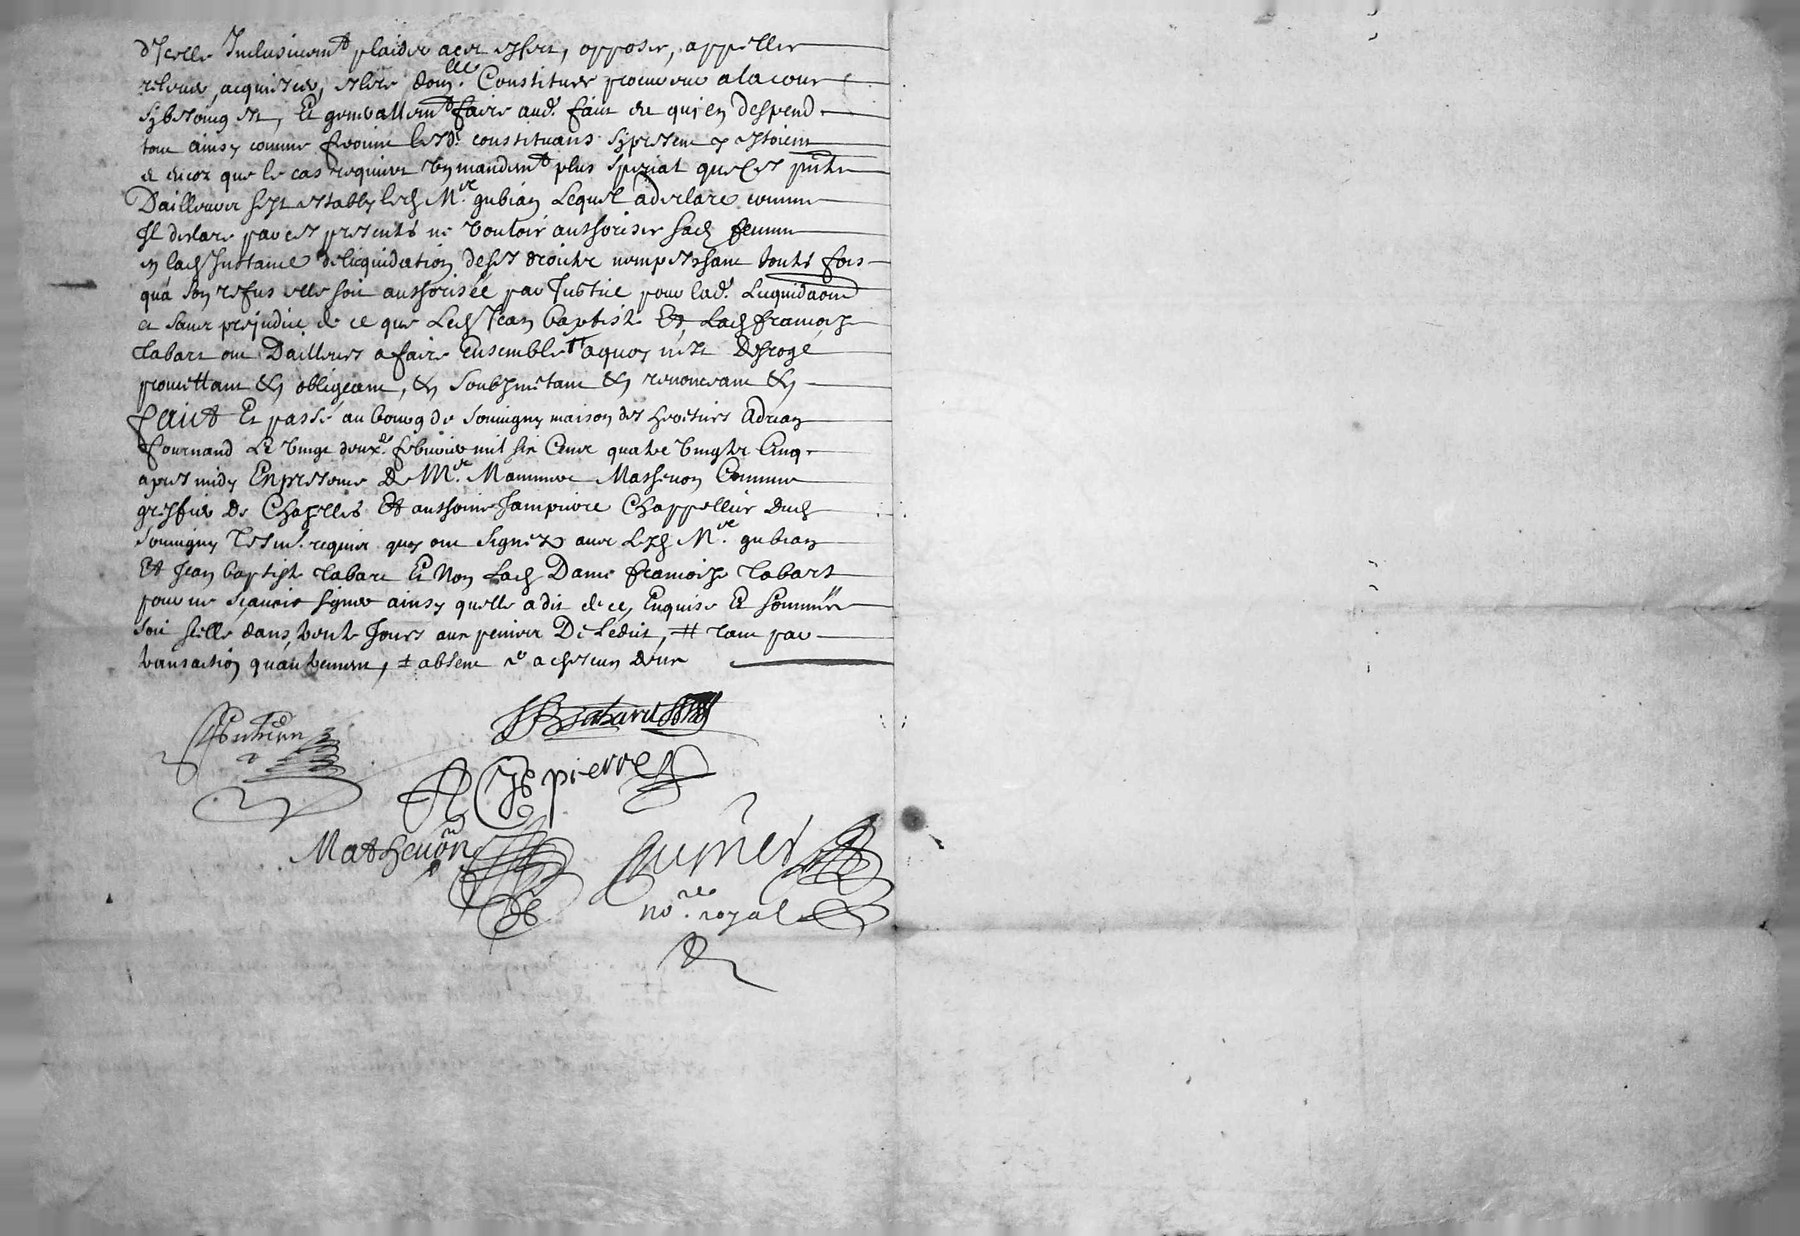 d'Icelle Inclusivemt plaider a cet effect, opposer, appeller
relever, acquiescer, eslire domlle Constituer procureur a la cour
sy besoing est, Et generallemt faire aud. faict ce qui en despend
tout ainsy comme feroint lesd. constituans sy present y estoient
et encor que le cas requiere un mandemt plus special que ces pntes
Dailleurs sest estably led Mre gubian Lequel a declaré comme
Il declare par ces presents ne vouloir authoriser sad femme
en lad Instance de liquidation desd droicts nempeschant touts fois
qua son refus elle soit authorisée par Justice pour lad. Liquidaon
et sans prejudice de ce que Led Jean baptiste Et Lad francoise
tabart ont Dailleurs a faire Ensemble a quoy n'est Desrogé
promettant & obligeant, & soubsmetant & renonceant &
faict Et passé au bourg de souvigny maison des heretiers adrian
fournand Le vingt deuxe febvrier mil six Cent quatre vingts Cinq
apres midy En presence De Mre Matheuon Commis
greffier De Chapelles Et anthoine Jampierre Chappellier dud
souvigny tesm. requis quy ont signez avec Led Mre gubian
Et Jean baptiste tabart Et Non Lad Dame francoise tabart
pour ne scauoir signer ainsy quelle a dit de ce Enquise Et sommée
soit scellé dans trente Jours aux peines De L'edict, # tant par
transaction quautrement, ± absent
Gubian
JB tabart
Jepierre
Matheuon
nore royal